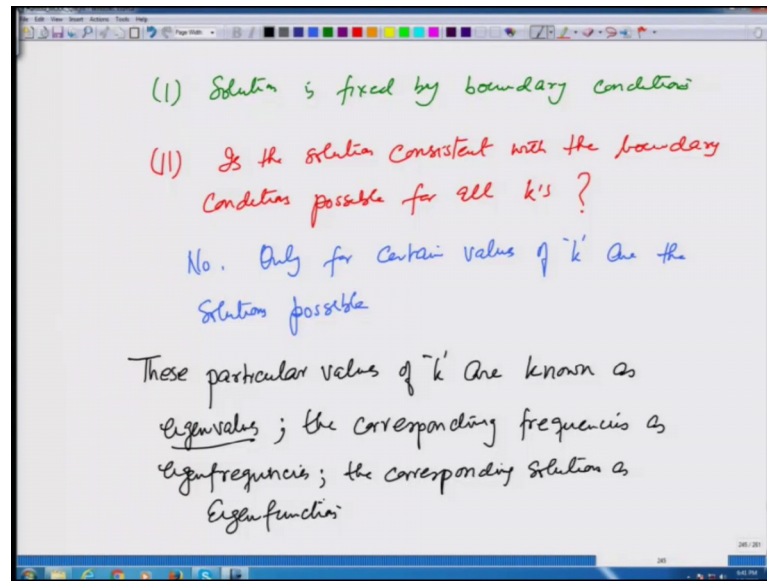 File Edit View Insert Actions Tools Help
Page Width
(I) Solution is fixed by boundary conditions
(II) Is the solution consistent with the boundary
conditions possible for all k's ?
No. Only for certain values of 'k' are the
solutions possible
These particular values of 'k' are known as
eigenvalues ; the corresponding frequencies as
eigenfrequencies ; the corresponding solution as
Eigenfunction
245 / 281
245
6:41 PM